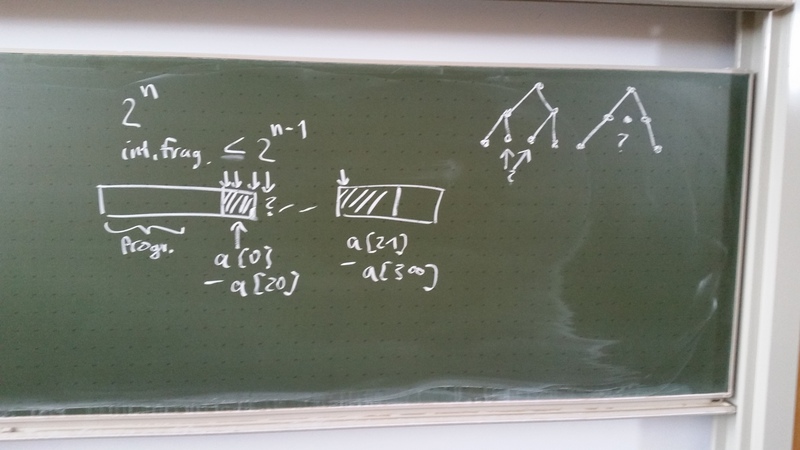 2^n
int. frag. ≤ 2^{n-1}
?
?
?
Progr.
a[0]
- a[20]
a[21]
- a[300]